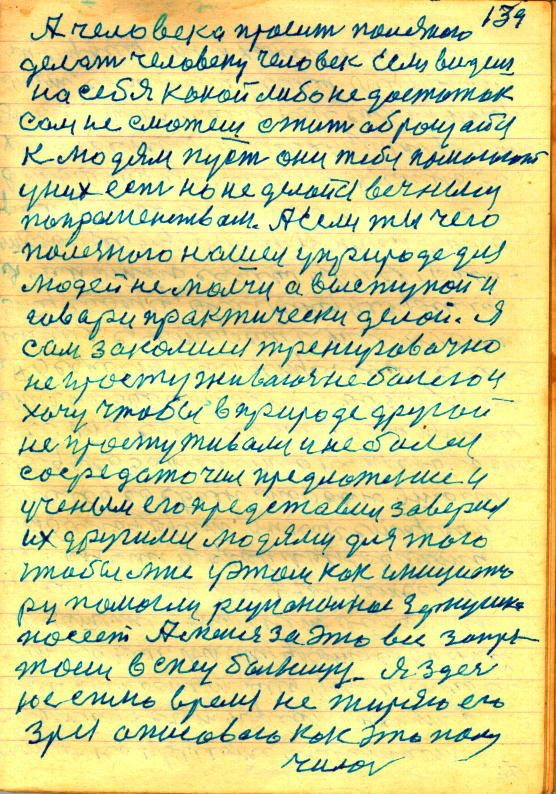 139
А человека просит полезного
делат человеку человек Если видеш
на себя какой либо не достаток
сам не сможеш
к людям пуст они тебя помогают
у них ест но не делайся вечным
А если ты чего
полезного нашел у природе для
людей не молчи а выступай и
говари практически делай. Я
сам закалился тренировочно
не простуживаюся не болею и
хочу чтобы в природе другой
не простуживался и не болел
сосредаточил предложение и
ученым его представил заверил
их другими людями для того
чтобы мне у этом как инициато
ру помогли
посеет А меня за это все
в спец больницу. Я здес
время не теряю его
зря описоваю как это полу
чилос